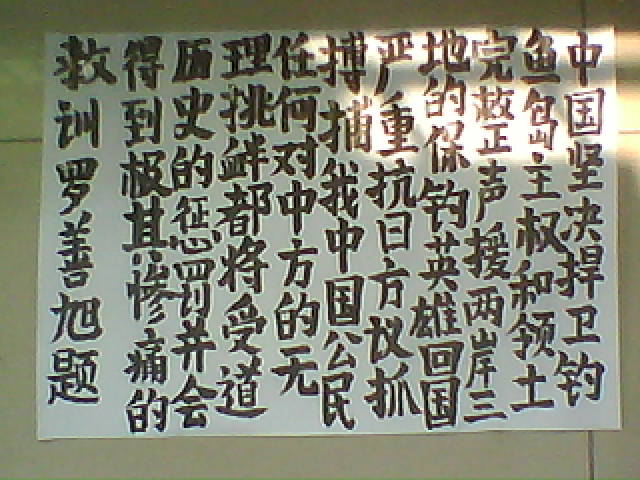 中国坚决捍卫钓
鱼岛主权和领土
完整声援两岸三
地的保钓英雄回国
严重抗日方议抓
搏捕我中国公民
任何对中方的无
理挑衅都将受道
历史的惩罚并会
得到极其惨痛的
教训罗善旭题